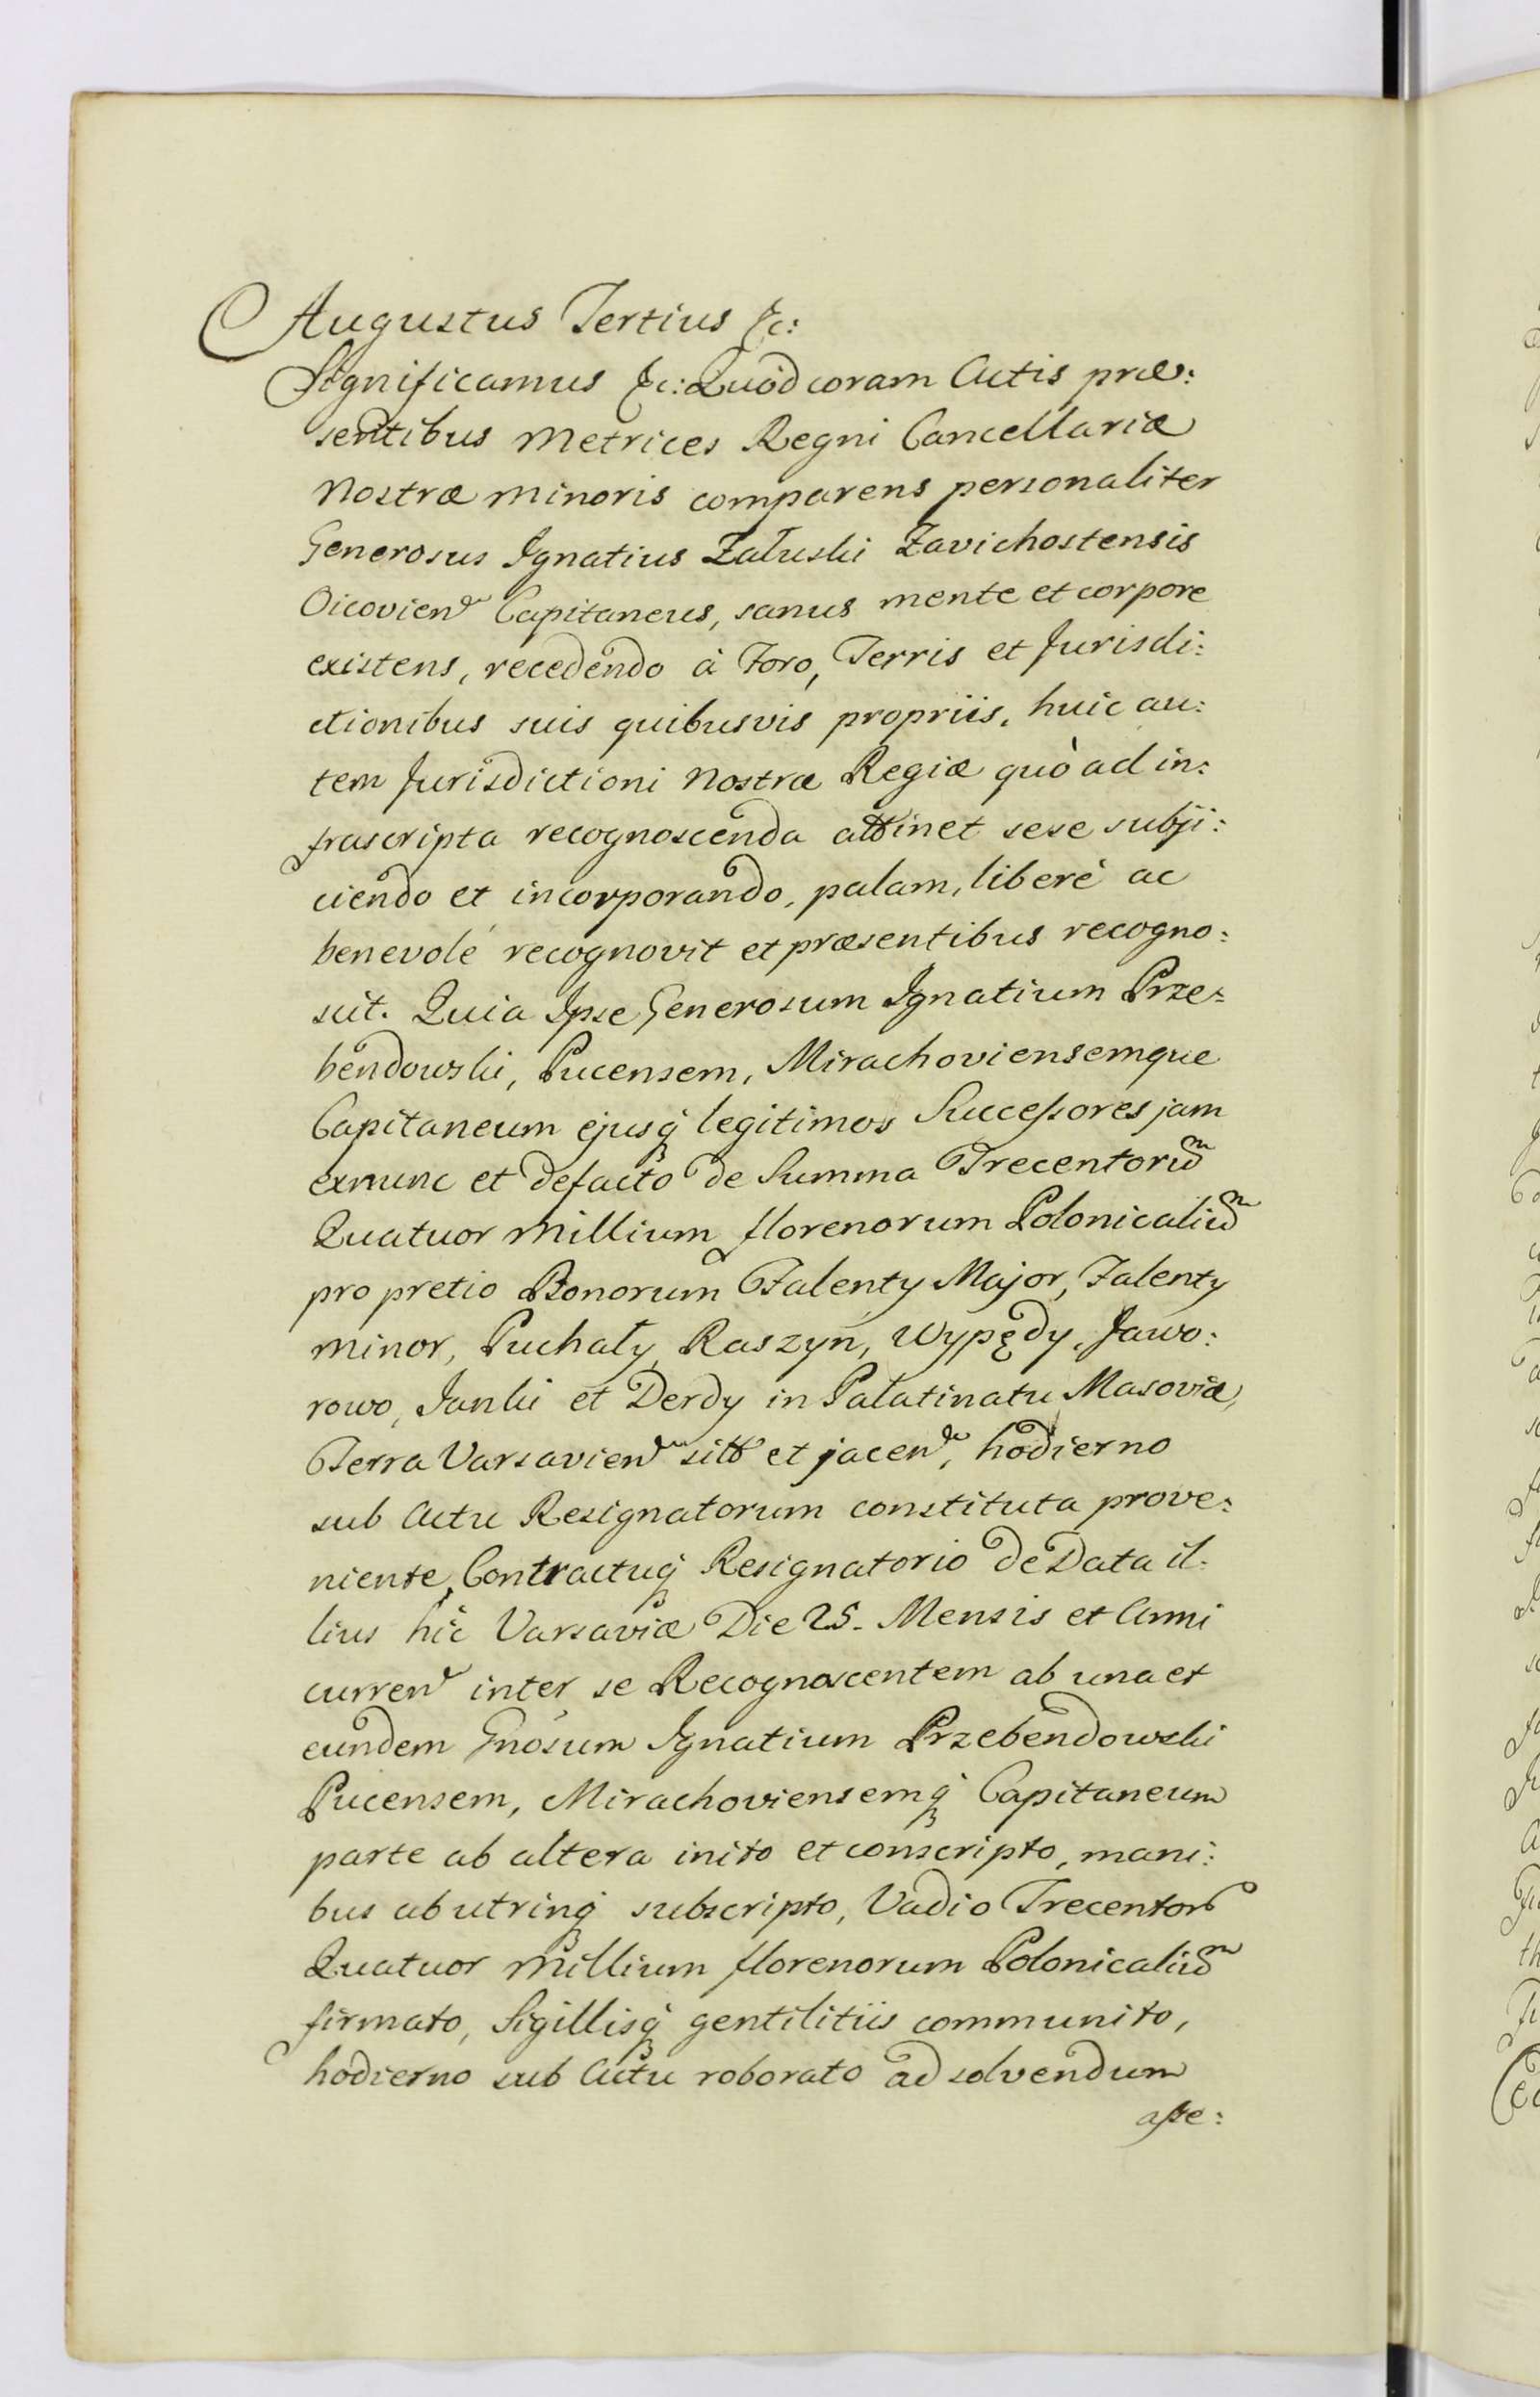 Augustus Tertius &c:
Significamus &c: Quòd coram Actis præ:
sentibus Metrices Regni Cancellariæ
Nostræ minoris comparens personaliter
Generosus Ignatius Załuski Zavichostensis
Oicovien Capitaneus, sanus mente et corpore
existens, recedendo à Foro, Terris et Jurisdi:
ctionibus suis quibusvis propriis, huic au:
tem Jurisdictioni Nostræ Regiæ quò ad in:
frascripta recognoscenda attinet sese subji:
ciendo et incorporando, palam, liberè ac
benevolè recognovit et præsentibus recogno:
scit. Quia Ipse Generosum Ignatium Prze:
bendowski, Pucensem, Mirachoviensemque
Capitaneum ejusq́ legitimos Successores jam
exnunc et defacto de Summa Trecentorum
Quatuor Millium florenorum Polonicalium
pro pretio Bonorum Falenty Major, Falenty
minor, Puchały, Raszyn, Wypędy, Jawo:
rowo, Janki et Derdy in Palatinatu Masoviæ,
Terra Varsavien sitt et jacen, hodierno
sub Actu Resignatorum constituta prove:
niente, Contractuq́ Resignatorio de Data il:
lius hìc Varsaviæ Die 25. Mensis et Anni
curren inter se Recognoscentem ab una et
eundem Gnosum Ignatium Przebendowski
Pucensem, Mirachoviensemq́ Capitaneum
parte ab altera inito et conscripto, mani:
bus ab utrinq́ subscripto, Vadio Trecentor
Quatuor Millium florenorum Polonicalium
firmato, Sigillisq́ gentilitiis communito,
hodierno sub Actu roborato ad solvendum
asse: